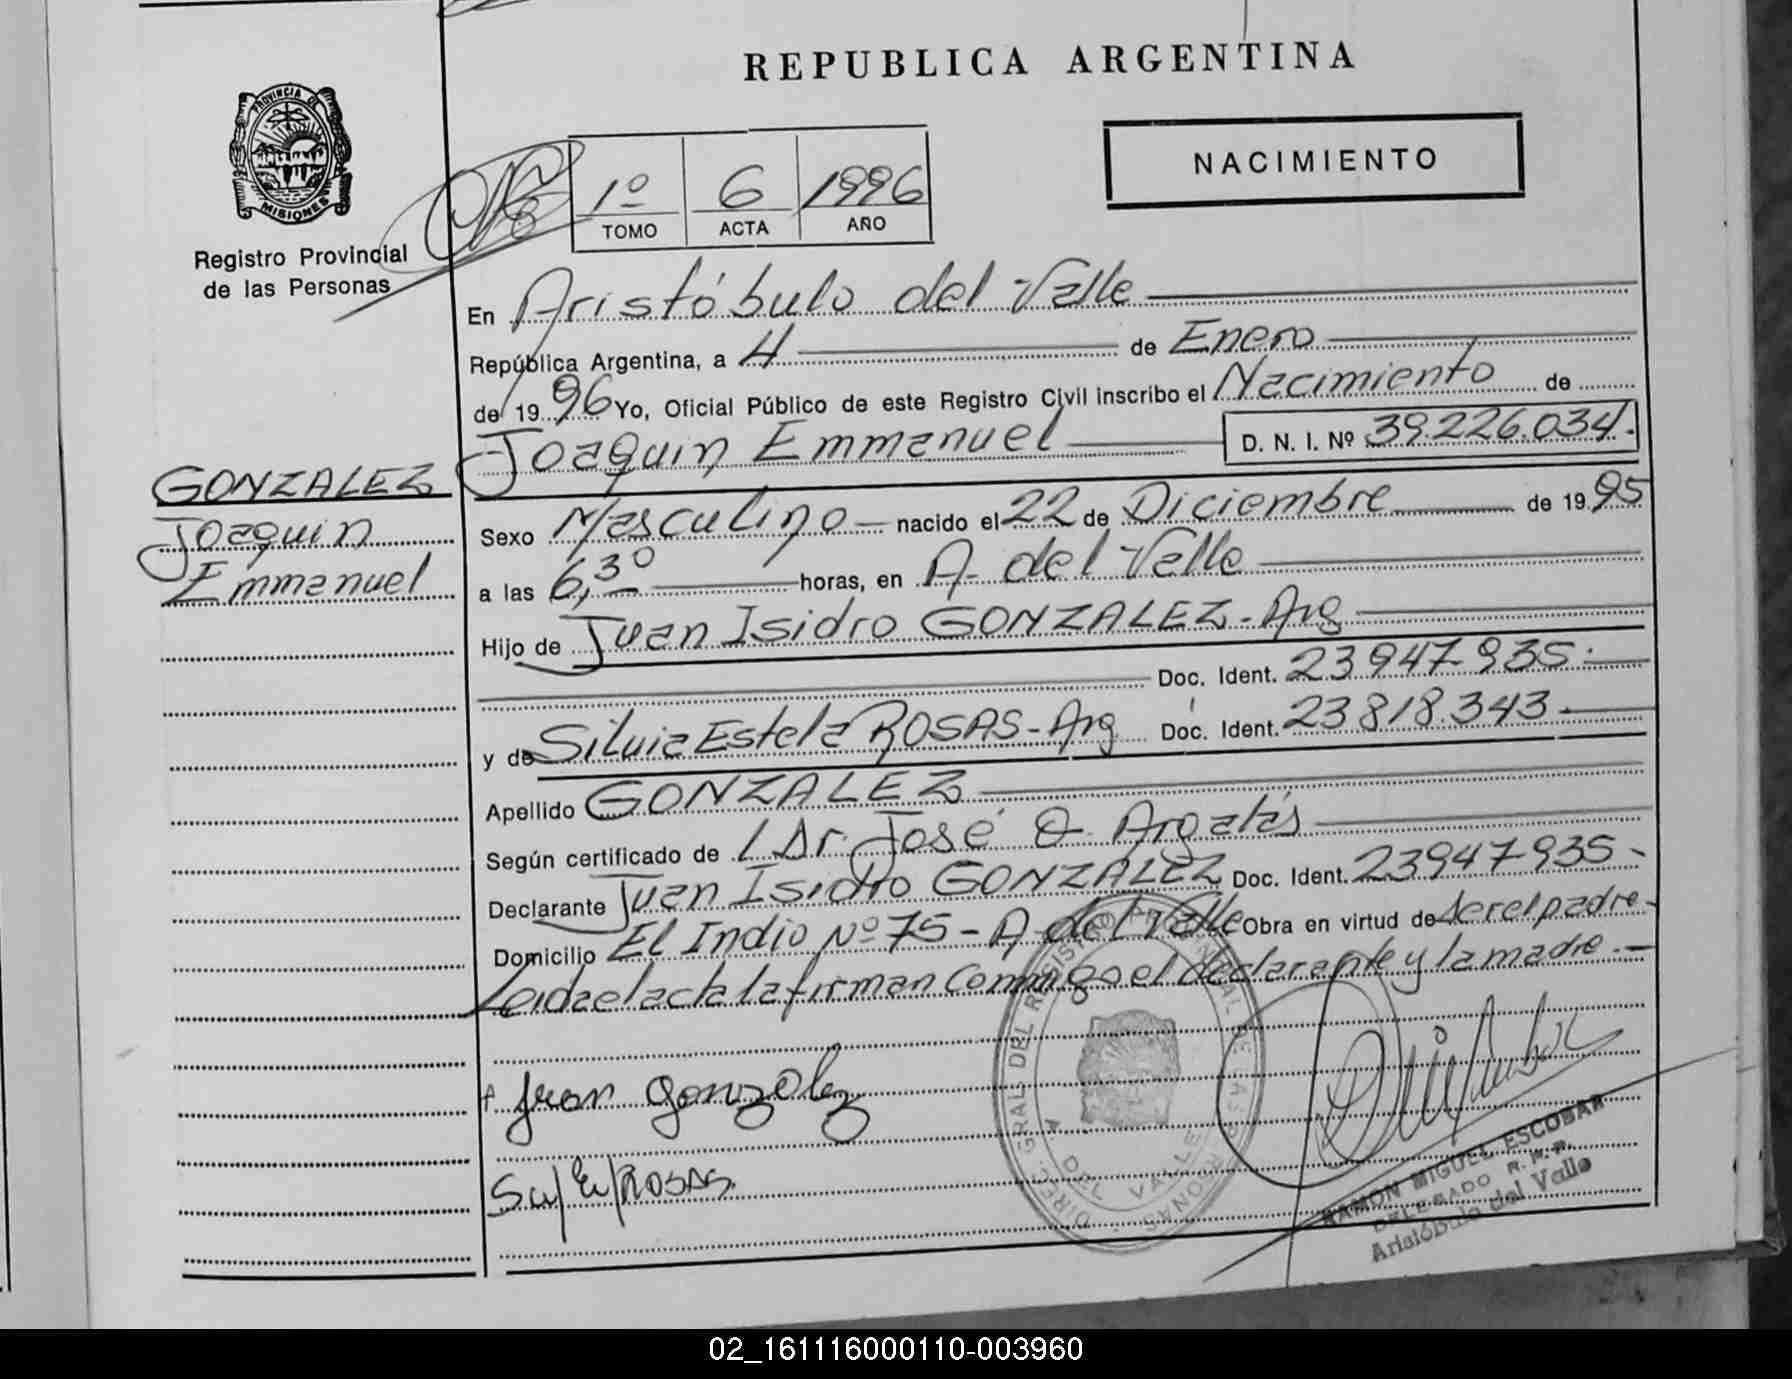 REPUBLICA ARGENTINA
PROVINCIA DE
MISIONES
Registro Provincial
de las Personas
NACIMIENTO
1º 6 1996
TOMO ACTA AÑO
En Aristóbulo del Valle
República Argentina, a 4 de Enero
de 1996 Yo, Oficial Público de este Registro Civil inscribo el Nacimiento de
Joaquin Emmanuel D. N. I. Nº 39.226.034.
GONZALEZ
Joaquin
Emmanuel
Sexo Masculino nacido el 22 de Diciembre de 1995
a las 6,30 horas, en A. del Valle
Hijo de Juan Isidro GONZALEZ - Arg
Doc. Ident. 23947935.
y de Silvia Estela ROSAS - Arg Doc. Ident. 23818.343.
Apellido GONZALEZ
Según certificado de Dr. José O.
Declarante Juan Isidro GONZALEZ Doc. Ident. 23947935.
Domicilio El Indio Nº 75 - A. del Valle Obra en virtud de ser el padre.
Leida el acta la firman conmigo el declarante y la madre.
Juan Gonzalez
ROSAS
DIREC. GRAL. DEL REGISTRO PROVINCIAL DE LAS PERSONAS
A. DEL VALLE
RAMON MIGUEL ESCOBAR
DELEGADO R.P.P.
Aristóbulo del Valle
02_161116000110-003960